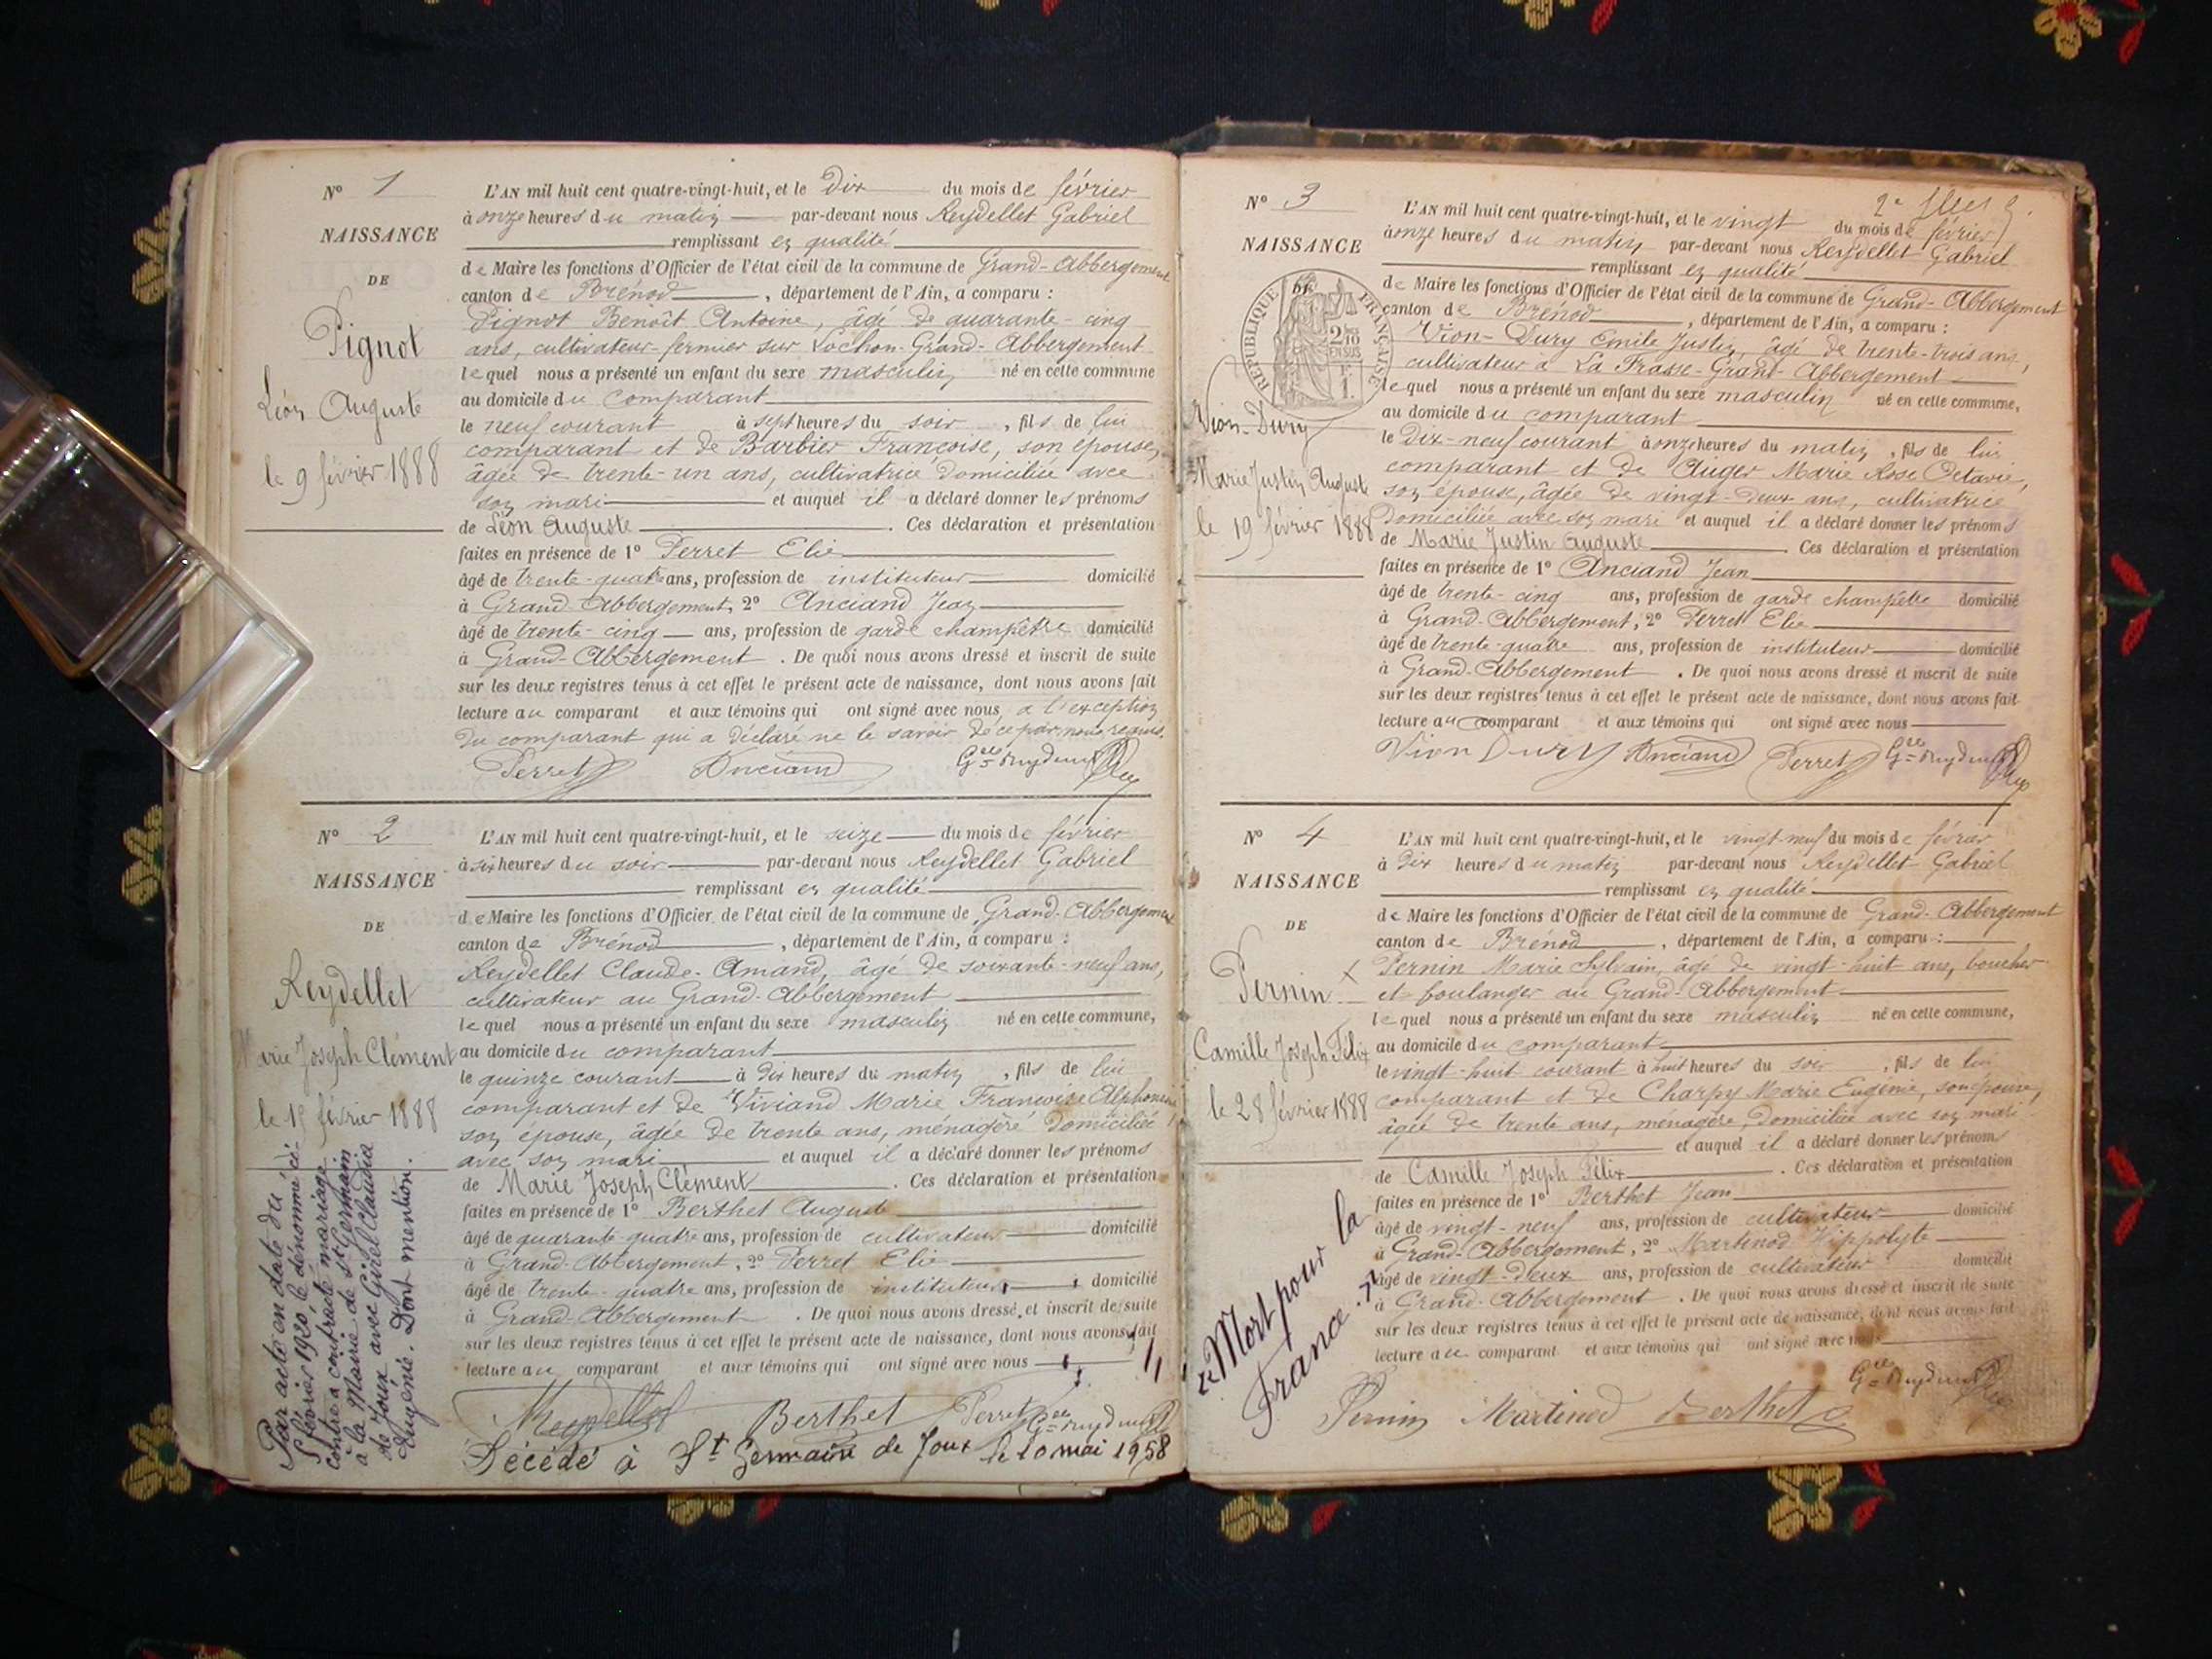 N° 1
NAISSANCE
DE
Pignot
Léon Auguste
le 9 février 1888
L'AN mil huit cent quatre-vingt-huit, et le Dix du mois de février
à onze heures du matin par-devant nous Reydellet Gabriel
remplissant en qualité
de Maire les fonctions d'Officier de l'état civil de la commune de Grand-Abbergement
canton de Brénod, département de l'Ain, a comparu :
Pignot Benoît Antoine, âgé de quarante-cinq
ans, cultivateur-fermier sur Lochon-Grand-Abbergement
lequel nous a présenté un enfant du sexe masculin né en cette commune
au domicile du comparant
le neuf courant à sept heures du soir, fils de lui
comparant et de Barbier Françoise, son épouse,
âgée de trente-un ans, cultivatrice domiciliée avec
son mari et auquel il a déclaré donner les prénoms
de Léon Auguste. Ces déclaration et présentation
faites en présence de 1° Perret Elie
âgé de trente-quatre ans, profession de instituteur domicilié
à Grand-Abbergement, 2° Anciand Jean
âgé de trente-cinq ans, profession de garde champêtre domicilié
à Grand-Abbergement. De quoi nous avons dressé et inscrit de suite
sur les deux registres tenus à cet effet le présent acte de naissance, dont nous avons fait
lecture au comparant et aux témoins qui ont signé avec nous, à l'exception
du comparant qui a déclaré ne le savoir de ce par nous requis.
Perret Anciand
N° 2
NAISSANCE
DE
Reydellet
Marie Joseph Clément
le 15 février 1888
Par acte en date du
5 février 1920 le dénommé ci-
contre a contracté mariage
à la Mairie de St Germain
de Joux avec Girel Claudia
Eugénie. Dont mention.
L'AN mil huit cent quatre-vingt-huit, et le seize du mois de février
à six heures du soir par-devant nous Reydellet Gabriel
remplissant en qualité
de Maire les fonctions d'Officier de l'état civil de la commune de Grand-Abbergement
canton de Brénod, département de l'Ain, a comparu :
Reydellet Claude-Amand, âgé de soixante-neuf ans,
cultivateur au Grand-Abbergement
lequel nous a présenté un enfant du sexe masculin né en cette commune,
au domicile du comparant
le quinze courant à dix heures du matin, fils de lui
comparant et de Viviand Marie Françoise Alphonsine,
son épouse, âgée de trente ans, ménagère domiciliée
avec son mari et auquel il a déclaré donner les prénoms
de Marie Joseph Clément. Ces déclaration et présentation
faites en présence de 1° Berthet Auguste
âgé de quarante-quatre ans, profession de cultivateur domicilié
à Grand-Abbergement, 2° Perret Elie
âgé de trente-quatre ans, profession de instituteur domicilié
à Grand-Abbergement. De quoi nous avons dressé et inscrit de suite
sur les deux registres tenus à cet effet le présent acte de naissance, dont nous avons fait
lecture au comparant et aux témoins qui ont signé avec nous
Reydellet Berthet Perret
Décédé à St Germain de Joux le 10 mai 1958
2e
N° 3
NAISSANCE
DE
RÉPUBLIQUE FRANÇAISE
2/10 EN SUS
Vion-Dury
Marie Justin Auguste
le 19 février 1888
L'AN mil huit cent quatre-vingt-huit, et le vingt du mois de février
à onze heures du matin par-devant nous Reydellet Gabriel
remplissant en qualité
de Maire les fonctions d'Officier de l'état civil de la commune de Grand-Abbergement
canton de Brénod, département de l'Ain, a comparu :
Vion-Dury Emile Justin, âgé de trente-trois ans,
cultivateur à La Frasse-Grand-Abbergement
lequel nous a présenté un enfant du sexe masculin né en cette commune,
au domicile du comparant
le Dix-neuf courant à onze heures du matin, fils de lui
comparant et de Auger Marie Rose Octavie,
son épouse, âgée de vingt-deux ans, cultivatrice
domiciliée avec son mari et auquel il a déclaré donner les prénoms
de Marie Justin Auguste. Ces déclaration et présentation
faites en présence de 1° Anciand Jean
âgé de trente-cinq ans, profession de garde champêtre domicilié
à Grand-Abbergement, 2° Perret Elie
âgé de trente-quatre ans, profession de instituteur domicilié
à Grand-Abbergement. De quoi nous avons dressé et inscrit de suite
sur les deux registres tenus à cet effet le présent acte de naissance, dont nous avons fait
lecture au comparant et aux témoins qui ont signé avec nous
Vion Dury Anciand Perret
N° 4
NAISSANCE
DE
Pernin
Camille Joseph Félix
le 28 février 1888
"Mort pour la
France."
L'AN mil huit cent quatre-vingt-huit, et le vingt-neuf du mois de février
à dix heures du matin par-devant nous Reydellet Gabriel
remplissant en qualité
de Maire les fonctions d'Officier de l'état civil de la commune de Grand-Abbergement
canton de Brénod, département de l'Ain, a comparu :
Pernin Marie Sylvain, âgé de vingt-huit ans, boucher
et boulanger au Grand-Abbergement
lequel nous a présenté un enfant du sexe masculin né en cette commune,
au domicile du comparant
le vingt-huit courant à huit heures du soir, fils de lui
comparant et de Charpy Marie Eugénie, son épouse,
âgée de trente ans, ménagère, domiciliée avec son mari
et auquel il a déclaré donner les prénoms
de Camille Joseph Félix. Ces déclaration et présentation
faites en présence de 1° Berthet Jean
âgé de vingt-neuf ans, profession de cultivateur domicilié
à Grand-Abbergement, 2° Martinod Hippolyte
âgé de vingt-deux ans, profession de cultivateur domicilié
à Grand-Abbergement. De quoi nous avons dressé et inscrit de suite
sur les deux registres tenus à cet effet le présent acte de naissance, dont nous avons fait
lecture au comparant et aux témoins qui ont signé avec nous
Pernin Martinod Berthet